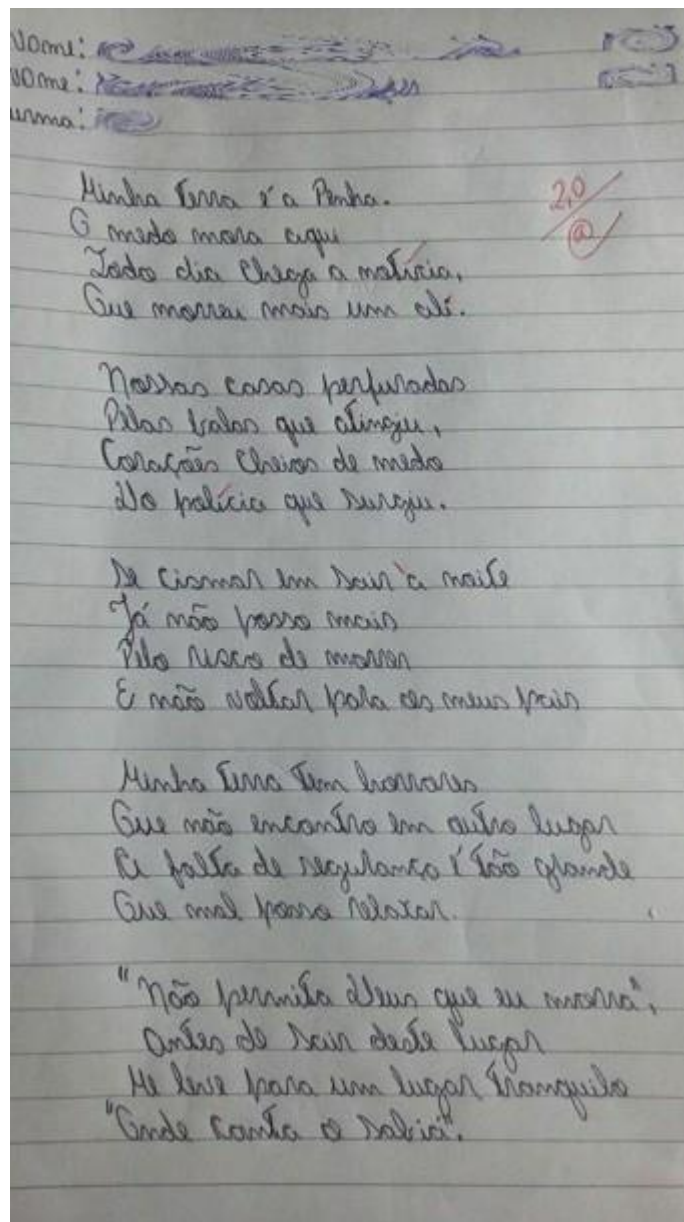 Nome:
Nome:
urma:
2,0
@
Minha terra é a Penha.
O medo mora aqui
Todo dia chega a notícia,
Que morreu mais um ali.
Nossas casas perfuradas
Pelas balas que atingiu,
Corações cheios de medo
Do polícia que surgiu.
Se cismar em sair à noite
Já não posso mais
Pelo risco de morrer
E não voltar para os meus pais
Minha terra tem horrores
Que não encontro em outro lugar
A falta de segurança é tão grande
Que mal posso relaxar.
"Não permita Deus que eu morra",
Antes de sair deste lugar
Me leve para um lugar tranquilo
"Onde canta o sabiá".